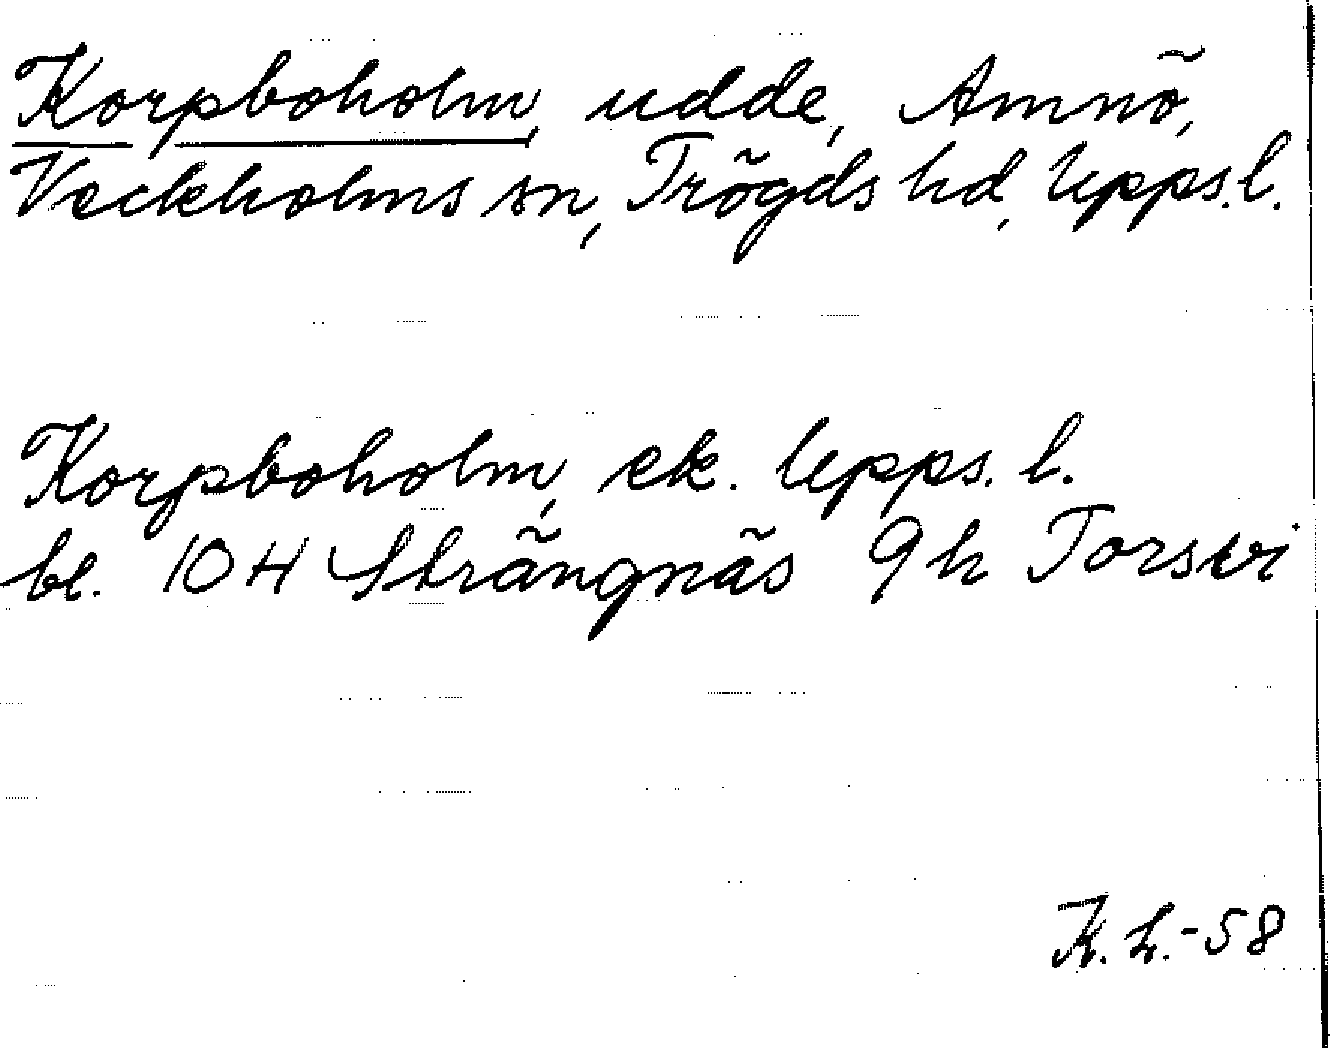 Korpboholm, udde, Amnö,
Veckholms sn, Trögds hd, Upps.l.
Korpboholm, ek. Upps. l.
bl. 10 H Strängnäs 9h Torsvi
K. L.-58